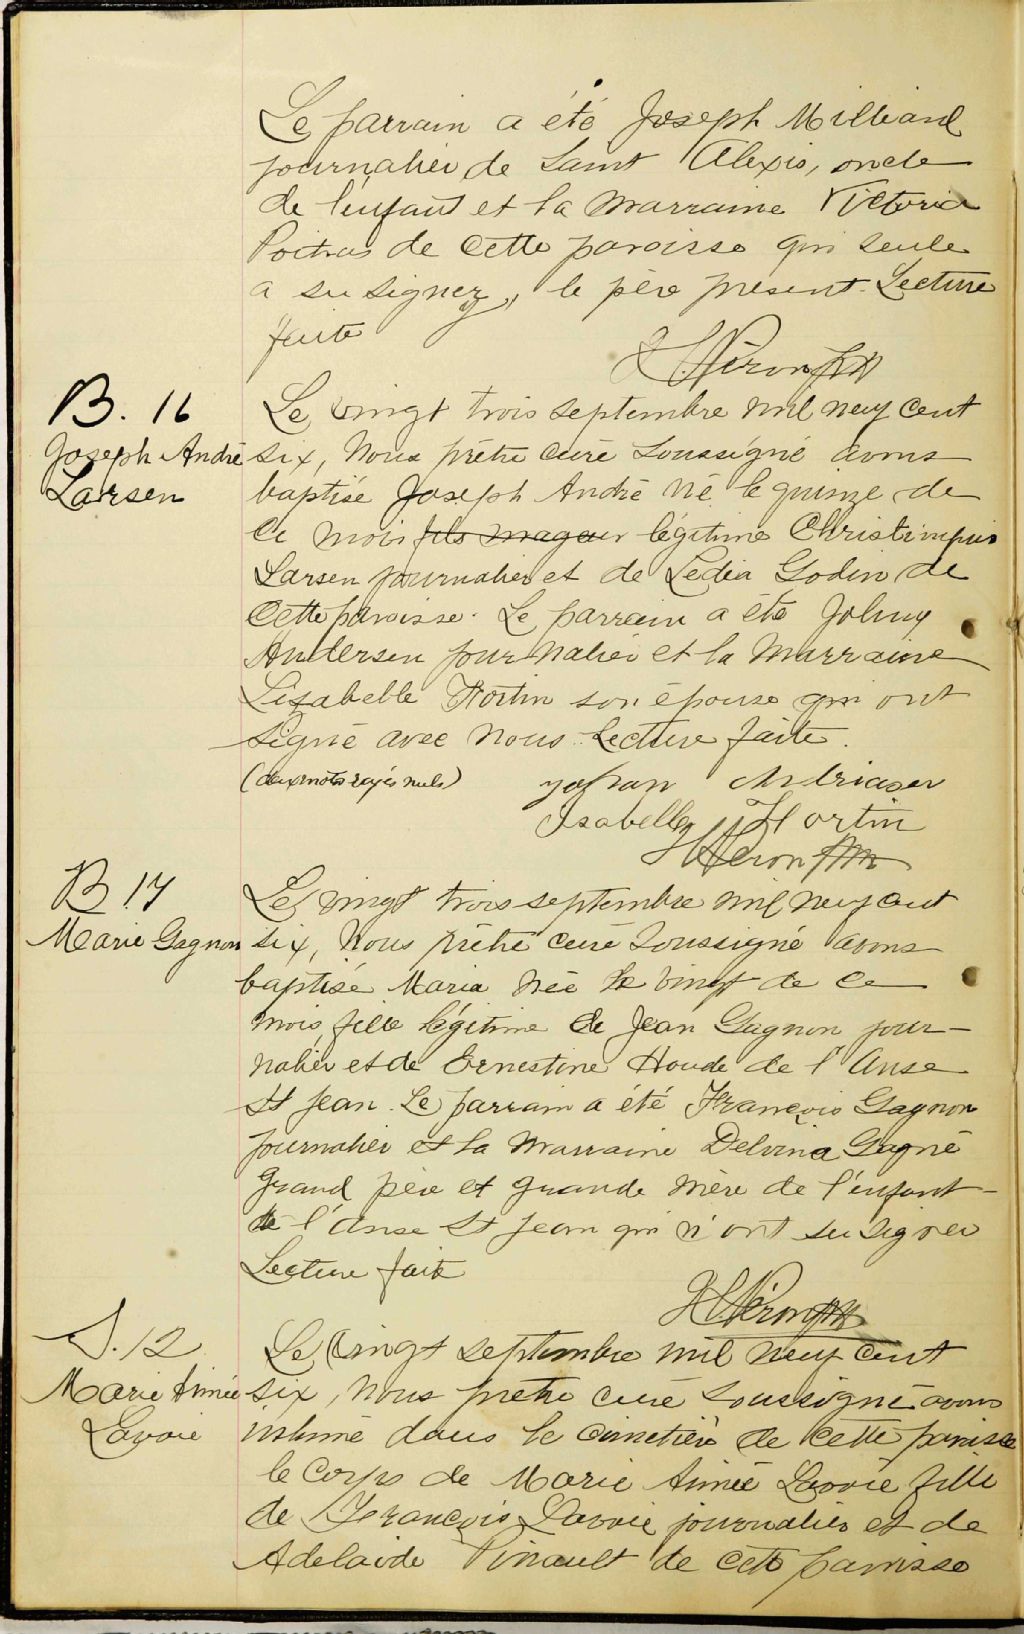 Le parrain a été Joseph Milliard
journalier de Saint Alexis, oncle
de l'enfant et la marraine Victoria
Poitras de cette paroisse qui seule
a su signer, le père présent. Lecture
faite
B. 16
Joseph André
Larsen
Le vingt trois septembre mil neuf cent
six, Nous prêtre curé soussigné avons
baptisé Joseph André né le quinze de
ce mois fils mageur légitime
Larsen journalier et de Ledia Godin de
cette paroisse. Le parrain a été Johny
Andersen journalier et la marraine
Lisabelle Fortin son épouse qui ont
signé avec nous. Lecture faite.
(deux mots rayés nuls)
Isabelle Fortin
B 17
Marie Gagnon
Le vingt trois septembre mil neuf cent
six, Nous prêtre curé soussigné avons
baptisé Maria née le vingt de ce
mois, fille légitime de Jean Gagnon jour-
nalier et de Ernestine Houde de l'Anse
St Jean. Le parrain a été François Gagnon
journalier et la marraine Delvina Gagné
grand père et grande mère de l'enfant
de l'Anse St Jean qui n'ont su signer
Lecture faite
S. 12
Marie Aimée
Lavoie
Le vingt septembre mil neuf cent
six, nous prêtre curé soussigné avons
inhumé dans le cimetière de cette paroisse
le corps de Marie Aimée Lavoie fille
de François Lavoie journalier et de
Adelaide Pinault de cette paroisse